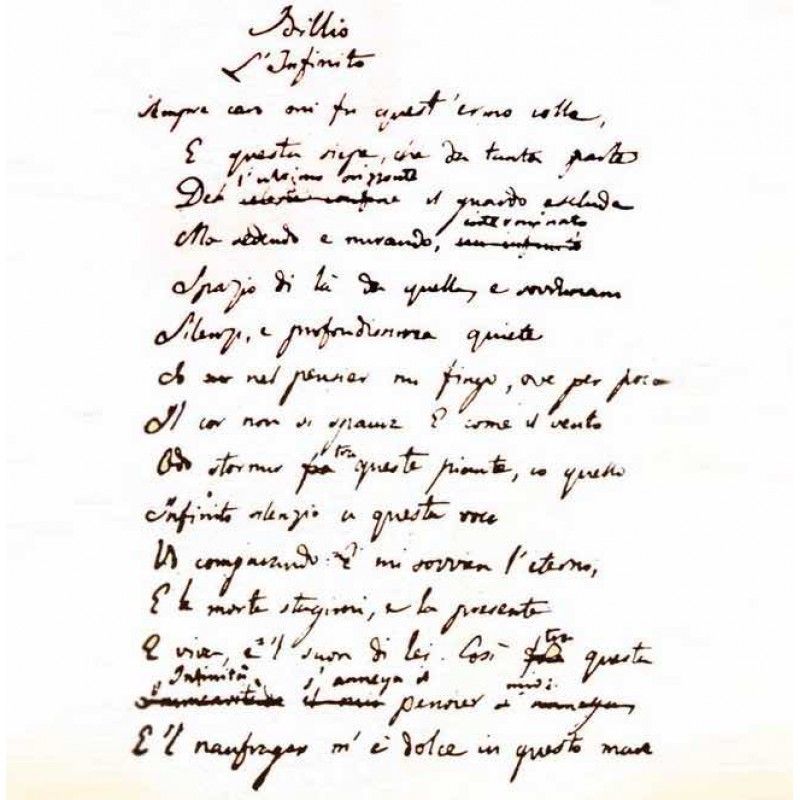 Idillio
L'Infinito
Sempre caro mi fu quest'ermo colle,
E questa siepe, che da tanta parte
l'ultimo orizzonte
Del celeste confine il guardo esclude
interminato
Ma sedendo e mirando, un infinito
Spazio di là da quella, e sovrumani
Silenzi, e profondissima quiete
Io nel pensier mi fingo, ove per poco
Il cor non si spaura E come il vento
tra
Odo stormir fra queste piante, io quello
Infinito silenzio a questa voce
Vo comparando: E mi sovvien l'eterno,
E le morte stagioni, e la presente
tra
E viva, e 'l suon di lei. Così fra questa
Infinità s'annega il mio
il mio pensier s'annega,
E 'l naufragar m'è dolce in questo mare